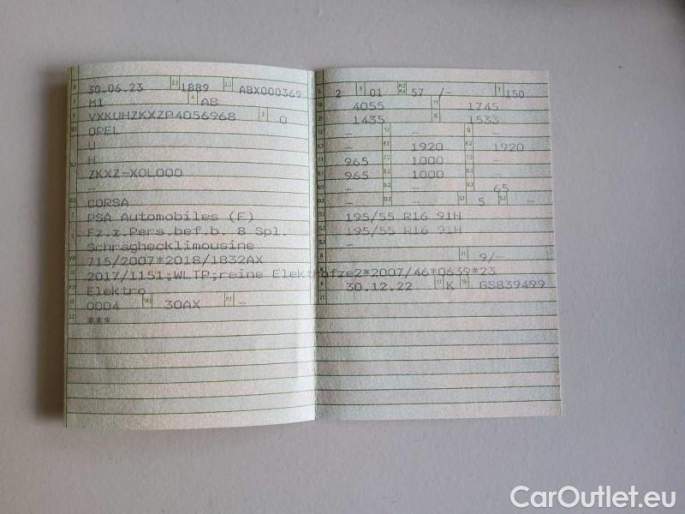 30.06.23 1889 ABX000369
M1 AB
VXKUHZKXZP4056968 0
OPEL
U
H
ZKXZ-X0L000
–
CORSA
PSA Automobiles (F)
Fz.z.Pers.bef.b. 8 Spl.
Schräghecklimousine
715/2007*2018/1832AX
2017/1151;WLTP;reine Elektrofze2*2007/46*0639*23
Elektro
0004 30AX –
***
2 01 57 /– 150
4055 1745
1435 1533
– – –
– 1920 1920
965 1000 –
965 1000 –
– – 65
– – 5 –
195/55 R16 91H
195/55 R16 91H
–
9/–
30.12.22 K GS839499
CarOutlet.eu